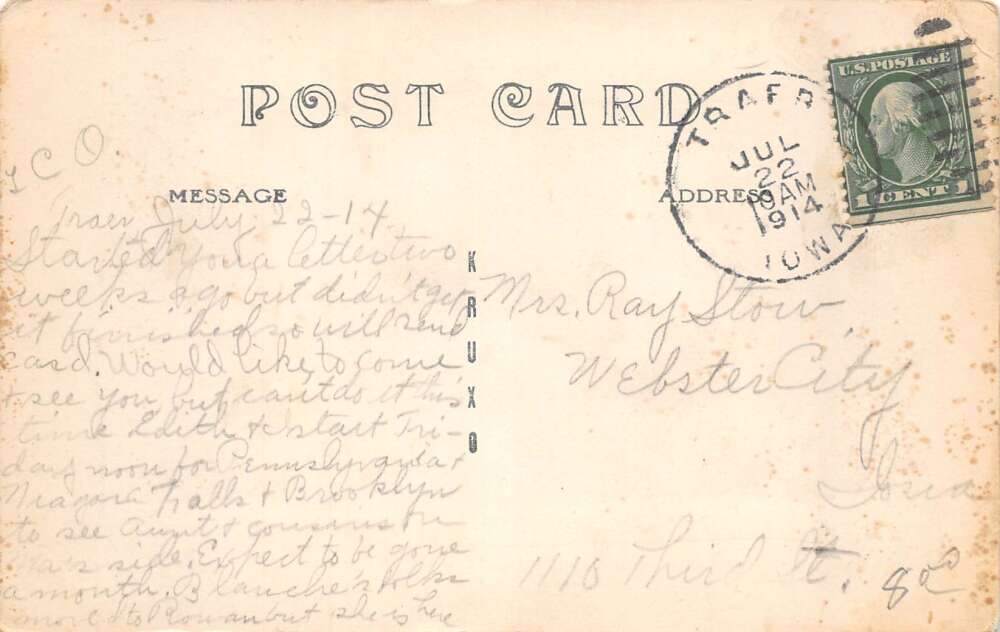 POST CARD
U.S. POSTAGE
1 CENT 1
TRAER
JUL
22
10AM
1914
IOWA
C O.
MESSAGE
ADDRESS
Traer July 22-14
Started you a letter two
weeks ago but didn't get
it finished so will send
card. Would like to come
& see you but can't do it this
time Edith & I start Fri-
day noon for Pennsylvania &
Niagara Falls & Brooklyn
to see Aunt & cousins on
side. Expect to be gone
a month. Blanche's folks
moved to Rowan but she is here
KRUXO
Mrs. Ray Stow,
Webster City
Iowa
1110 Third St.